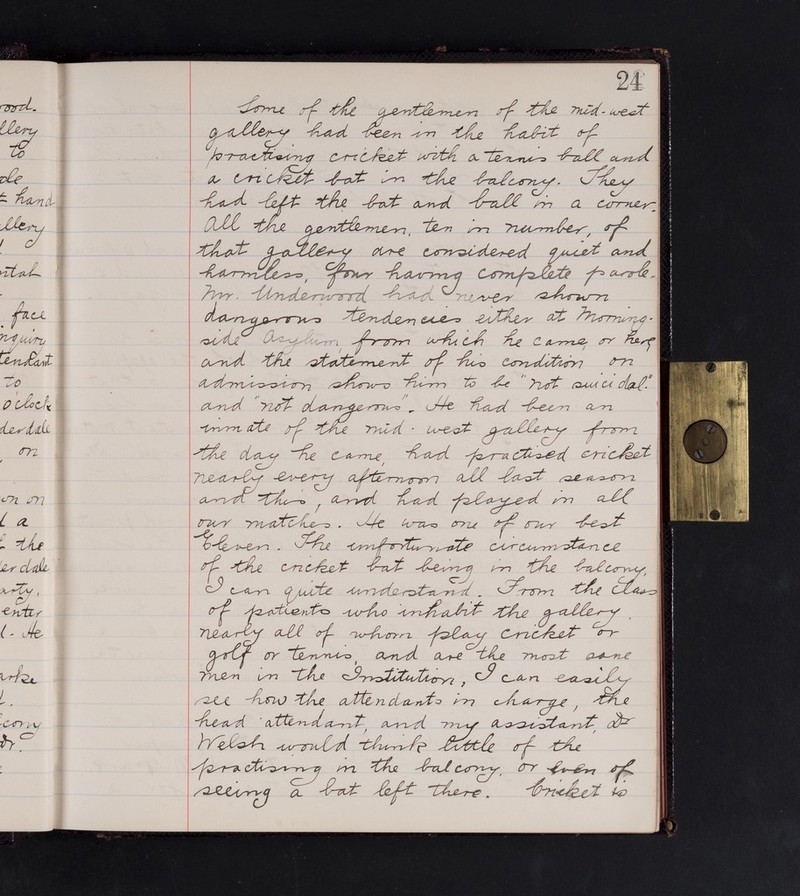 24
Some of the gentlemen of the mid-west
gallery had been in the habit of
practising cricket with a tennis ball and
a cricket bat in the balcony. They
had left the bat and ball in a corner.
All the gentlemen, ten in number, of
that gallery are considered quiet and
harmless, four having complete parole.
Mr. Underwood had never shown
dangerous tendencies either at Morning-
side Asylum, from which he came, or here,
and the statement of his condition on
admission shows him to be "not suicidal"
and "not dangerous". He had been an
inmate of the mid-west gallery from
the day he came, had practised cricket
nearly every afternoon all last season
and this, and had played in all
our matches. He was one of our best
Eleven. The unfortunate circumstance
of the cricket bat being in the balcony,
I can quite understand. From the class
of patients who inhabit the gallery,
nearly all of whom play cricket or
golf or tennis, and are the most sane
men in the Institution, I can easily
see how the attendants in charge, the
head attendant, and my assistant, Dr
Welsh would think little of the
practising in the balcony, or even of
seeing a bat left there. Cricket is
ood.
llery
to
ole
hand
allery
ital
face
nquiry
tendant
to
o'clock
derdale
on
on on
d a
the
erdale
arty.
enter
He
arke
cony
Dr.